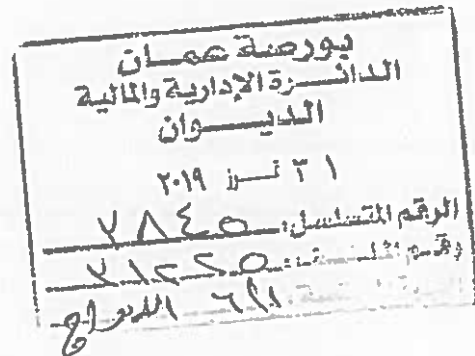 بورصة عمان
الدائرة الإدارية والمالية
الديوان
٣١ تموز ٢٠١٩
الرقم المتسلسل: ٧٨٤٥
رقم الملف:
الادراج